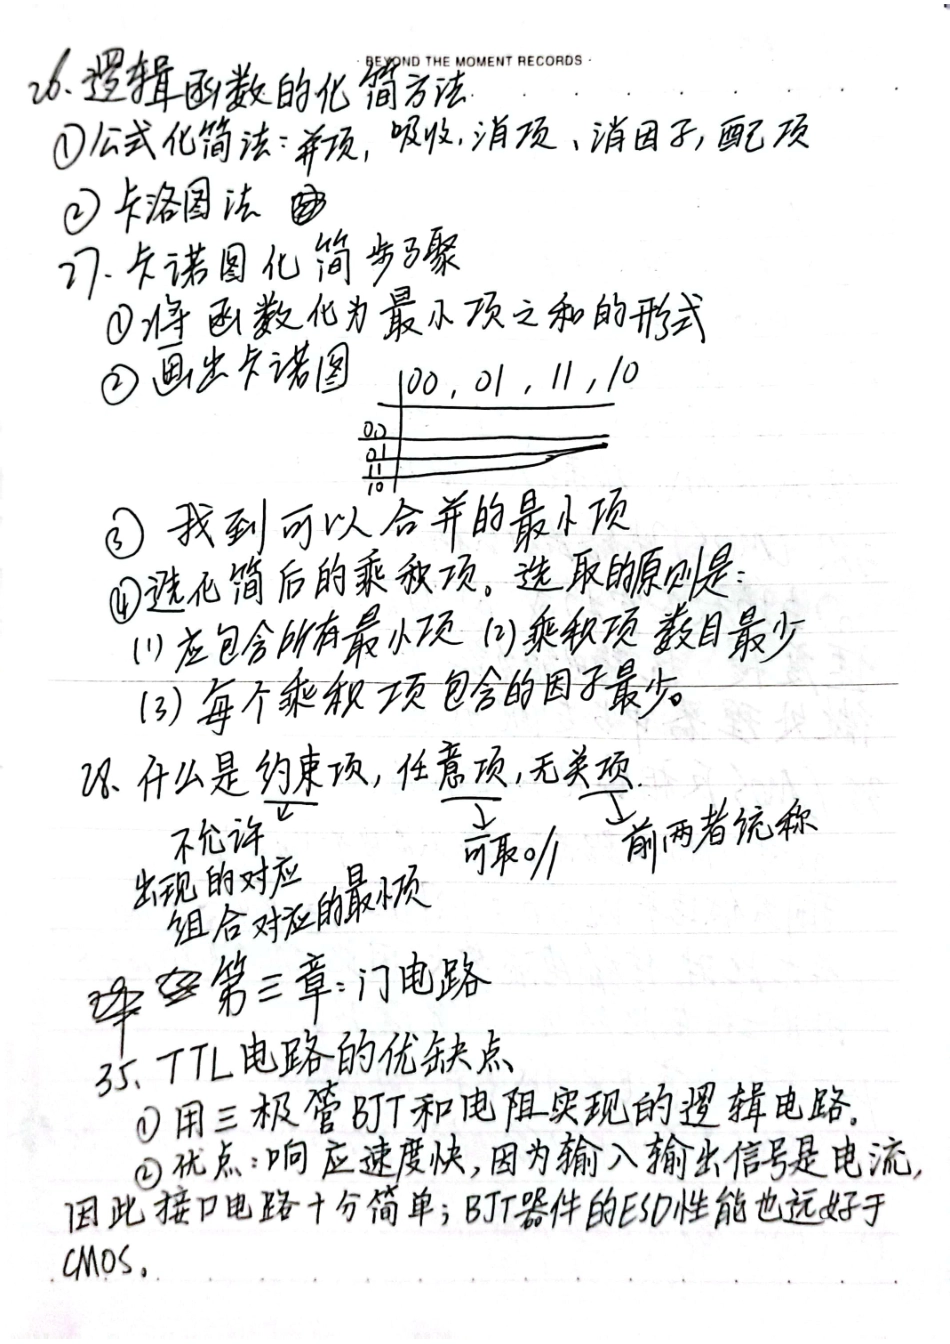 · BEYOND THE MOMENT RECORDS ·
26.逻辑函数的化简方法
①公式化简法:并项,吸收,消项、消因子,配项
②卡洛图法
27.卡诺图化简步骤
①将函数化为最小项之和的形式
②画出卡诺图
00,01,11,10
00
01
11
10
③ 找到可以合并的最小项
④选化简后的乘积项。选取的原则是:
(1)应包含所有最小项 (2)乘积项数目最少
(3)每个乘积项包含的因子最少。
28.什么是约束项,任意项,无关项.
不允许 可取0/1 前两者统称
出现的对应
组合对应的最小项
第三章:门电路
35、TTL电路的优缺点
①用三极管BJT和电阻实现的逻辑电路.
②优点:响应速度快,因为输入输出信号是电流,
因此接口电路十分简单;BJT器件的ESD性能也远好于
CMOS。